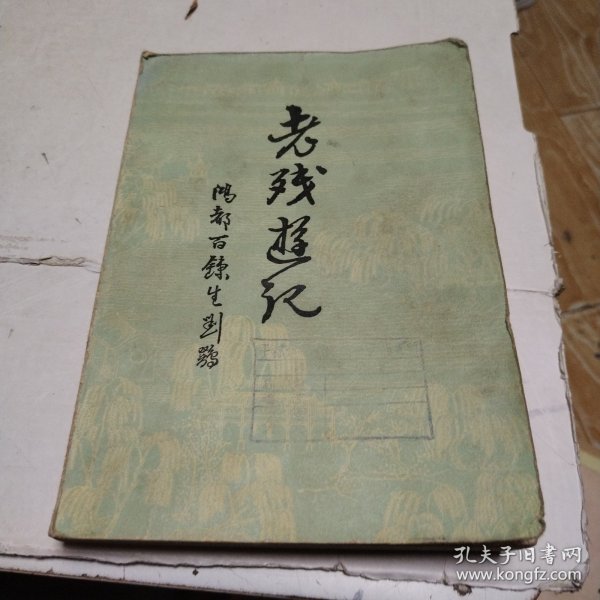 老残遊记
鴻都百鍊生刘鶚
孔夫子旧书网
www.kongfz.com